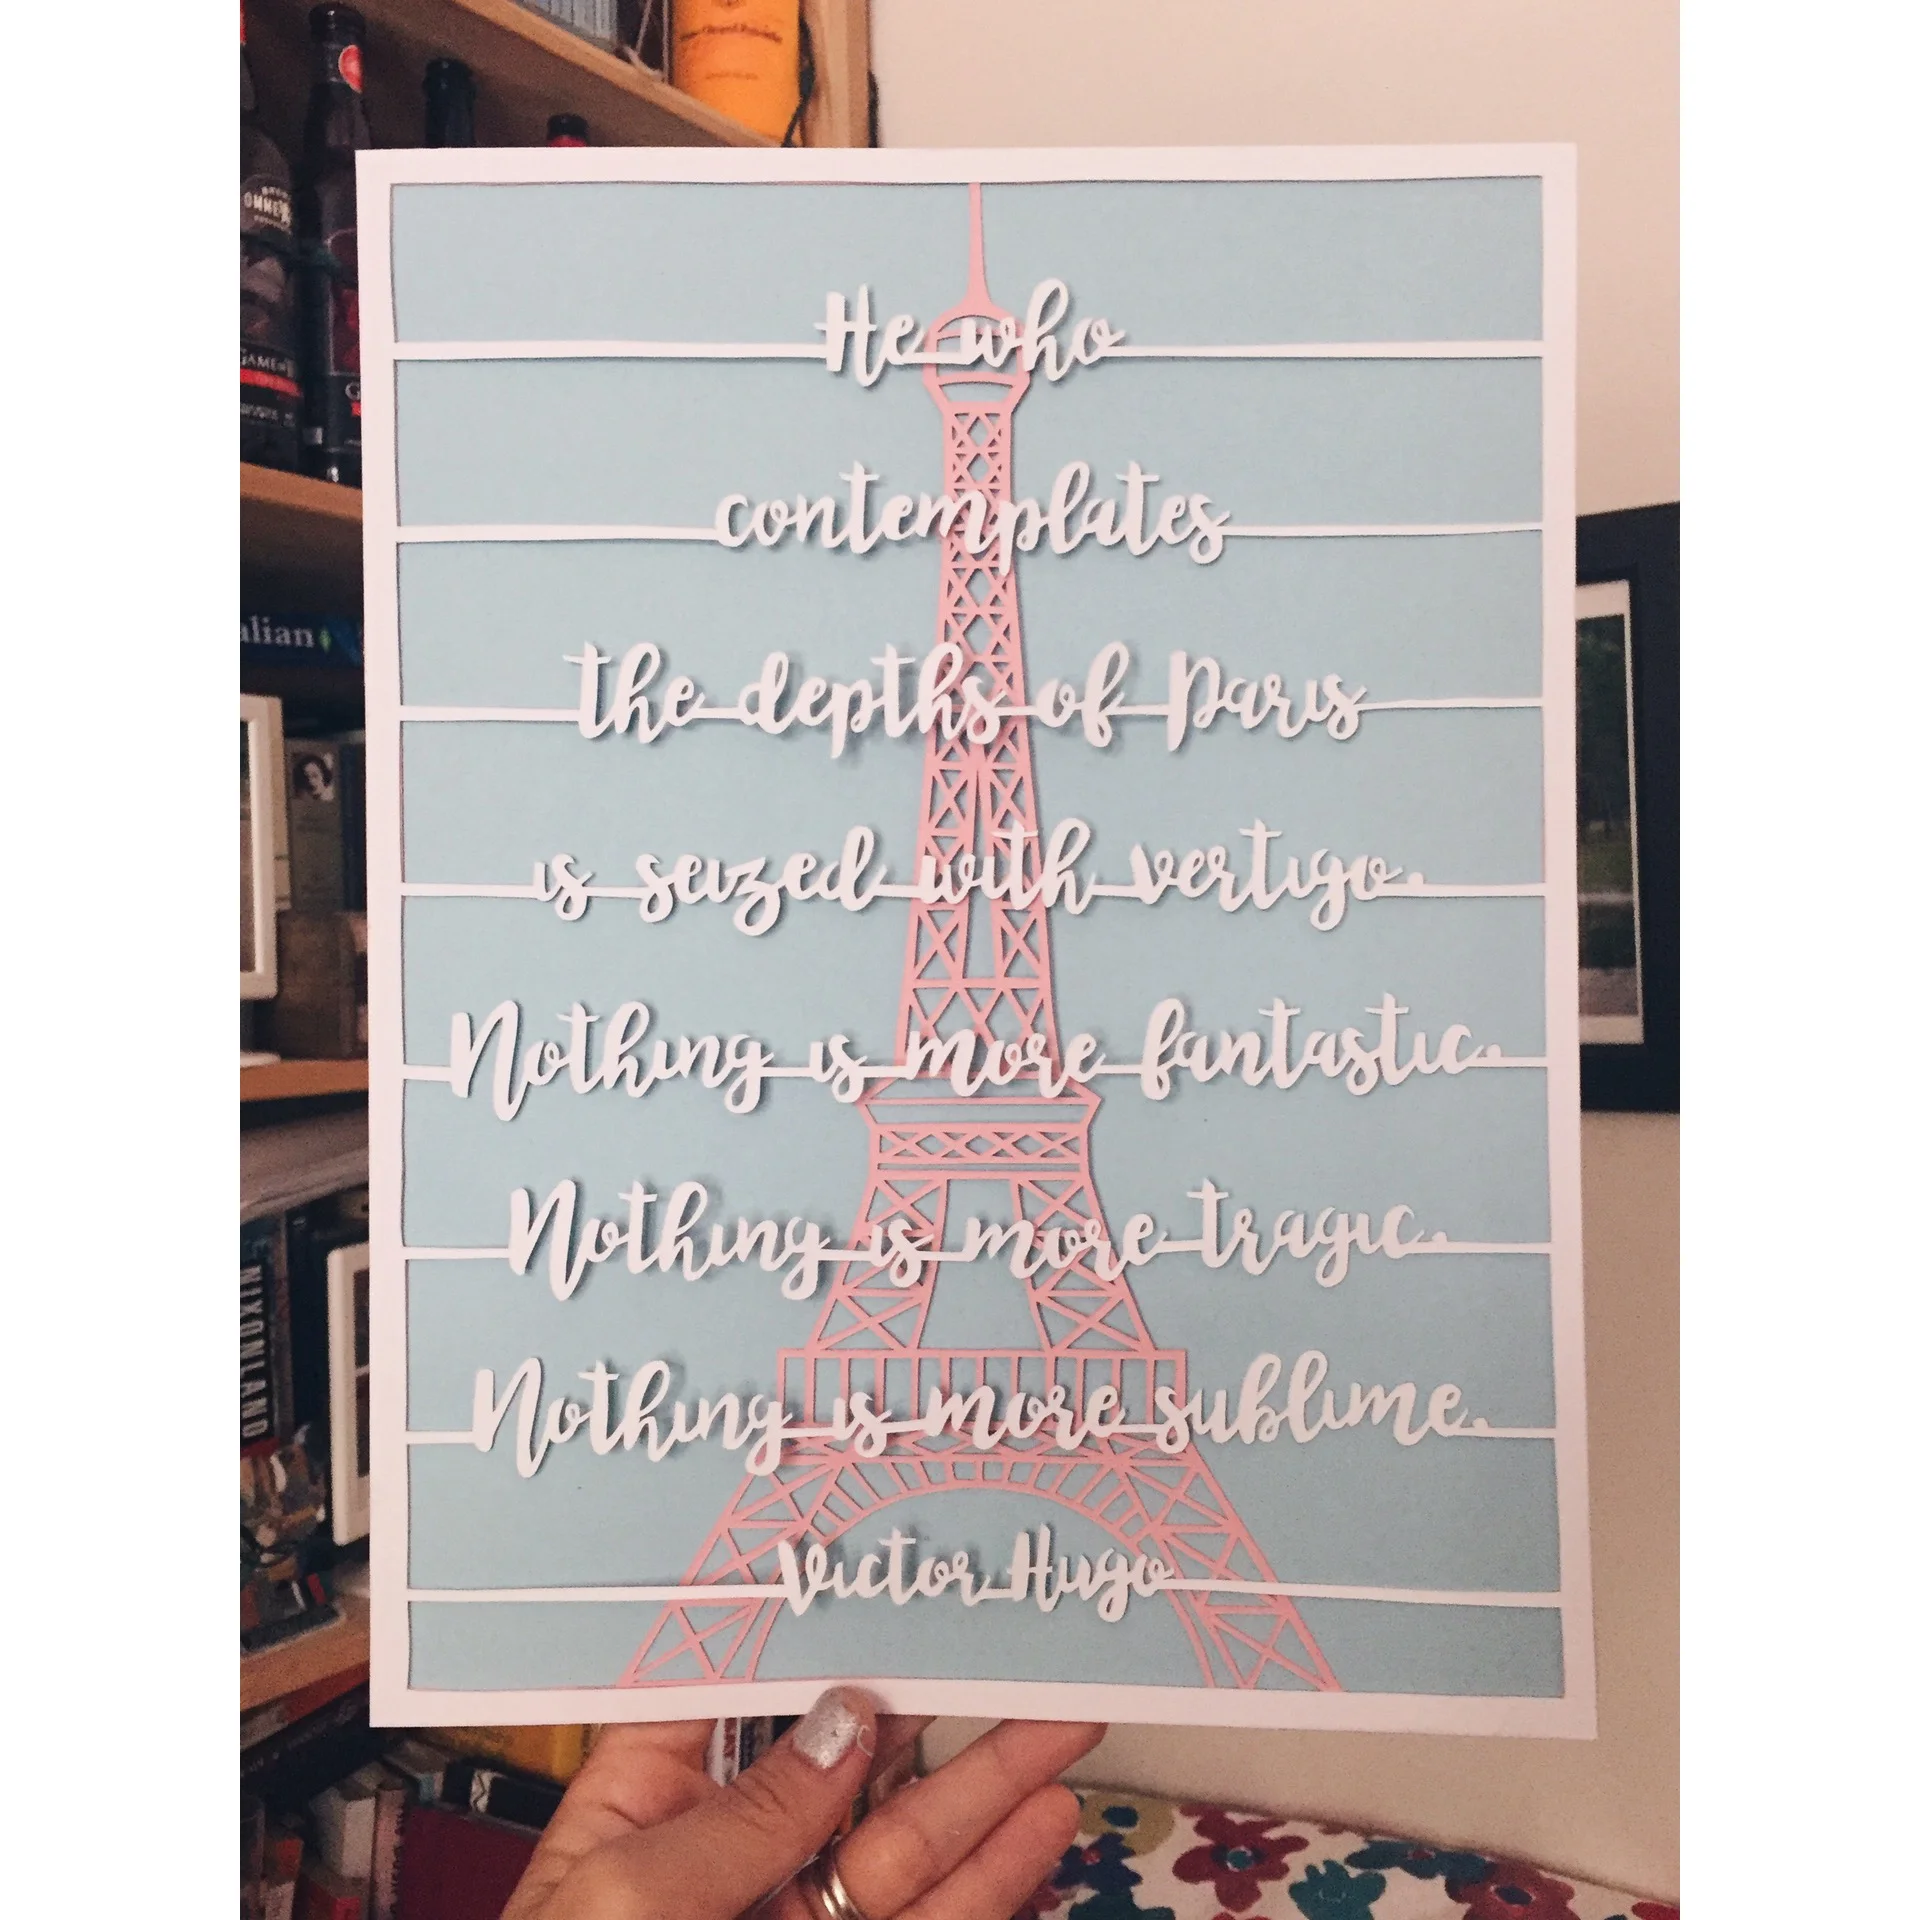 He who
contemplates
the depths of Paris
is seized with vertigo.
Nothing is more fantastic.
Nothing is more tragic.
Nothing is more sublime.
Victor Hugo
OMME
GAME OF
G
alian
NIXONLAND